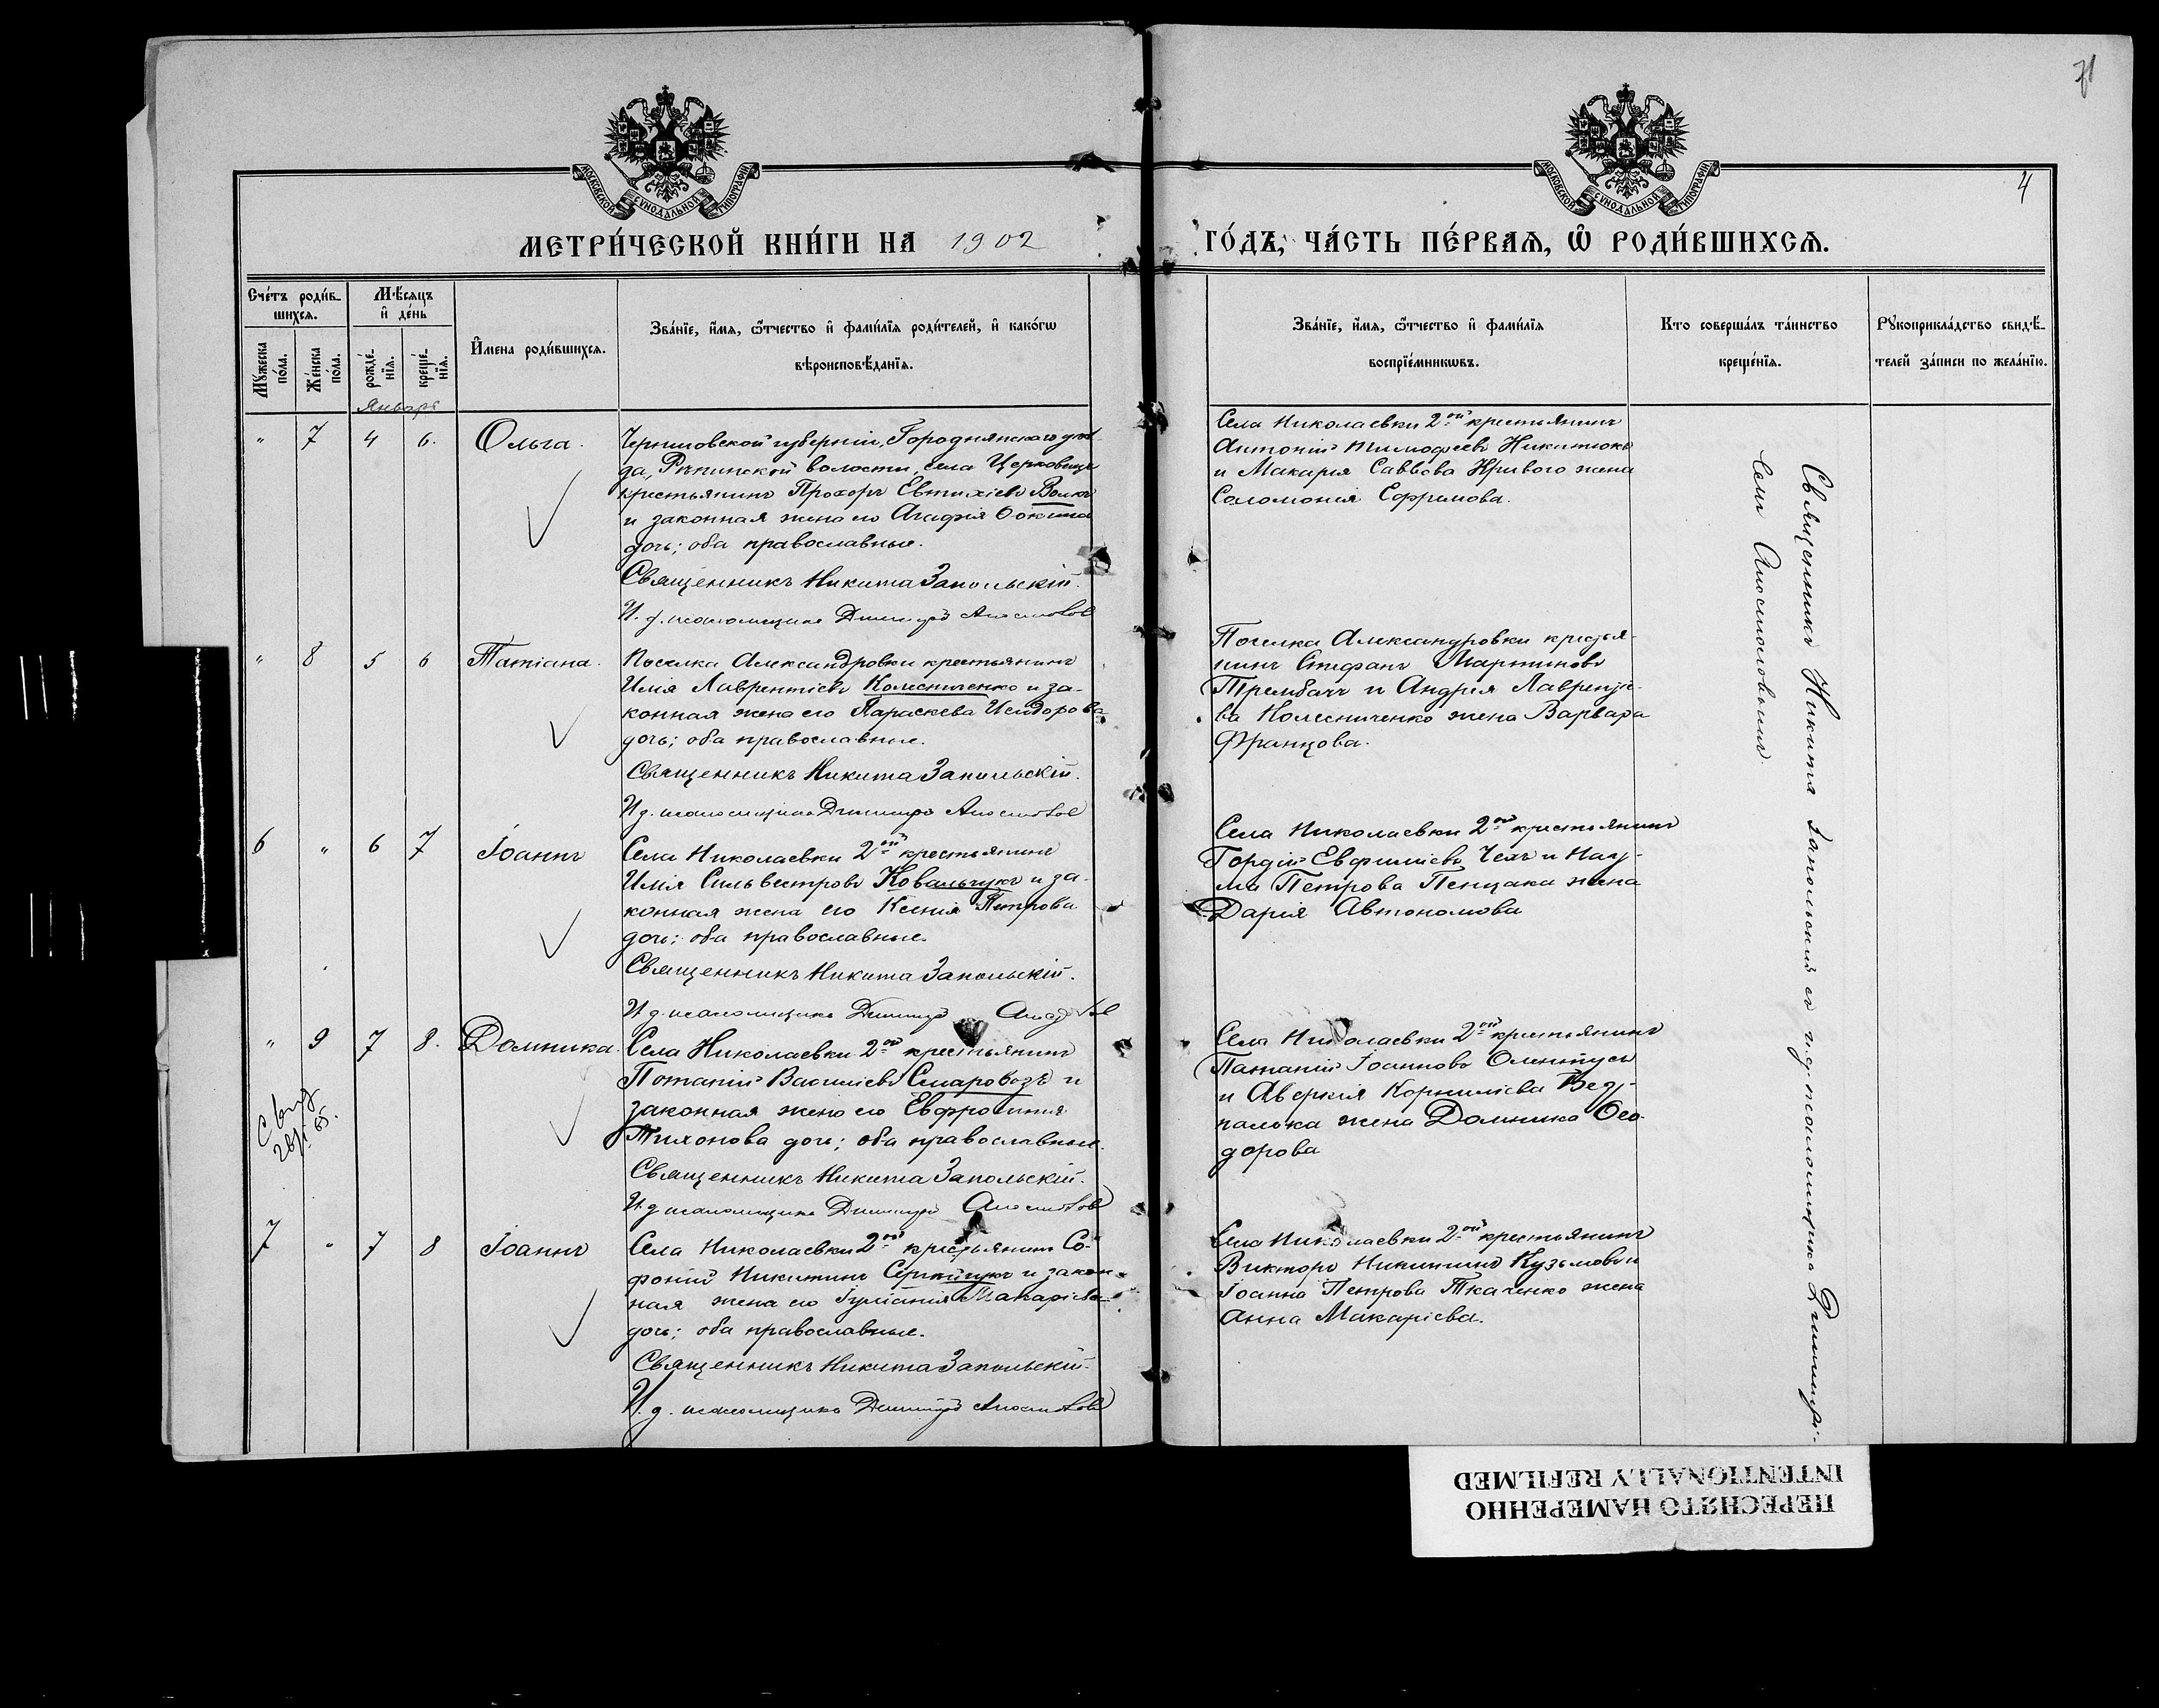 71
4
МОСКОВСКОЙ СУНОДАЛЬНОЙ ТИПОГРАФІИ
МОСКОВСКОЙ СУНОДАЛЬНОЙ ТИПОГРАФІИ
МЕТРИ́ЧЕСКОЙ КНИ́ГИ НА 1902
ГО́ДЪ, ЧА́СТЬ ПЕ́РВАЯ, Ѿ РОДИ́ВШИХСЯ.
Сче́тъ роди́в-
шихся.
Мѣ́сяцъ
и҆ де́нь
Му́жеска
по́ла.
Же́нска
по́ла.
рожде́-
нїя.
креще́-
нїя.
И҆мена роди́вшихся.
Зва́нїе, и҆́мя, ѻ҆́тчество и҆ фами́лїя роди́телей, и҆ како́гѡ
вѣроисповѣ́данїя.
Зва́нїе, и҆́мя, ѻ҆́тчество и҆ фами́лїя
воспрїе́мникѡвъ.
Кто соверша́лъ та́инство
креще́нїя.
Рꙋкоприкла́дство свидѣ́-
телей за́писи по жела́нїю.
Январь
" 7 4 6. Ольга.
Черниговской губерніи, Городнянскаго уѣз
да, Рѣпинской волости, села Церковище
крестьянинъ Прохоръ Евтихіевъ Волкъ
и законная жена его Агафія
дочь; оба православные.
Священникъ Никита Запольскій.
И. д. псаломщика Димитрій Апостолов
Села Николаевки 2ой крестьянинъ
Антоній Тимофеевъ Никитюкъ
и Макарія Саввова Кривого жена
Соломонія Ефримова.
" 8 5 6 Татіана.
Поселка Александровки крестьянинъ
Илія Лаврентіевъ Колесниченко и за-
конная жена его Параскева Исидорова
дочь; оба православные.
Священникъ Никита Запольскій.
И д. псаломщика Димитрій Апостолов
Поселка Александровки крестья-
нинъ Стефанъ Мартиновъ
Трембачъ и Андрея Лаврентіе-
ва Колесниченко жена Варвара
Францова.
6 " 6 7 Іоаннъ
Села Николаевки 2ой крестьянинъ
Илія Сильвестровъ Ковальчукъ и за-
конная жена его Ксенія Петрова
дочь; оба православные.
Священникъ Никита Запольскій.
И д. псаломщика Димитрій
Села Николаевки 2ой крестьянинъ
Гордій Евфиміевъ Чехъ и Нау-
ма Петрова Пенцака жена
Дарія Автономова
" 9 7 8. Домника.
Села Николаевки 2ой крестьянинъ
Потапій Василіевъ Смаровозъ и
законная жена его Евфросинія
Тихонова дочь; оба православные.
Священникъ Никита Запольскій.
И. д псаломщика Димитрій Апостолов
Села Николаевки 2ой крестьянинъ
Патапій Іоанновъ
и Аверкія Корниліева
жена Домника Ѳео-
дорова
7 " 7 8 Іоаннъ
Села Николаевки 2ой крестьянинъ Со-
фоній Никитинъ Сергійчукъ и закон
ная жена его Іуліанія Макаріева
дочь; оба православные.
Священникъ Никита Запольскій.
И. д. псаломщика Димитрій Апостолов
Села Николаевки 2ой крестьянинъ
Викторъ Никитинъ Кузьмовъ и
Іоанна Петрова Ткаченко жена
Анна Макаріева.
Священникъ Никита Запольскій съ и. д. псаломщика Димитрі-
емъ Апостоловымъ
ПЕРЕСНЯТО НАМЕРЕННО
INTENTIONALLY REFILMED